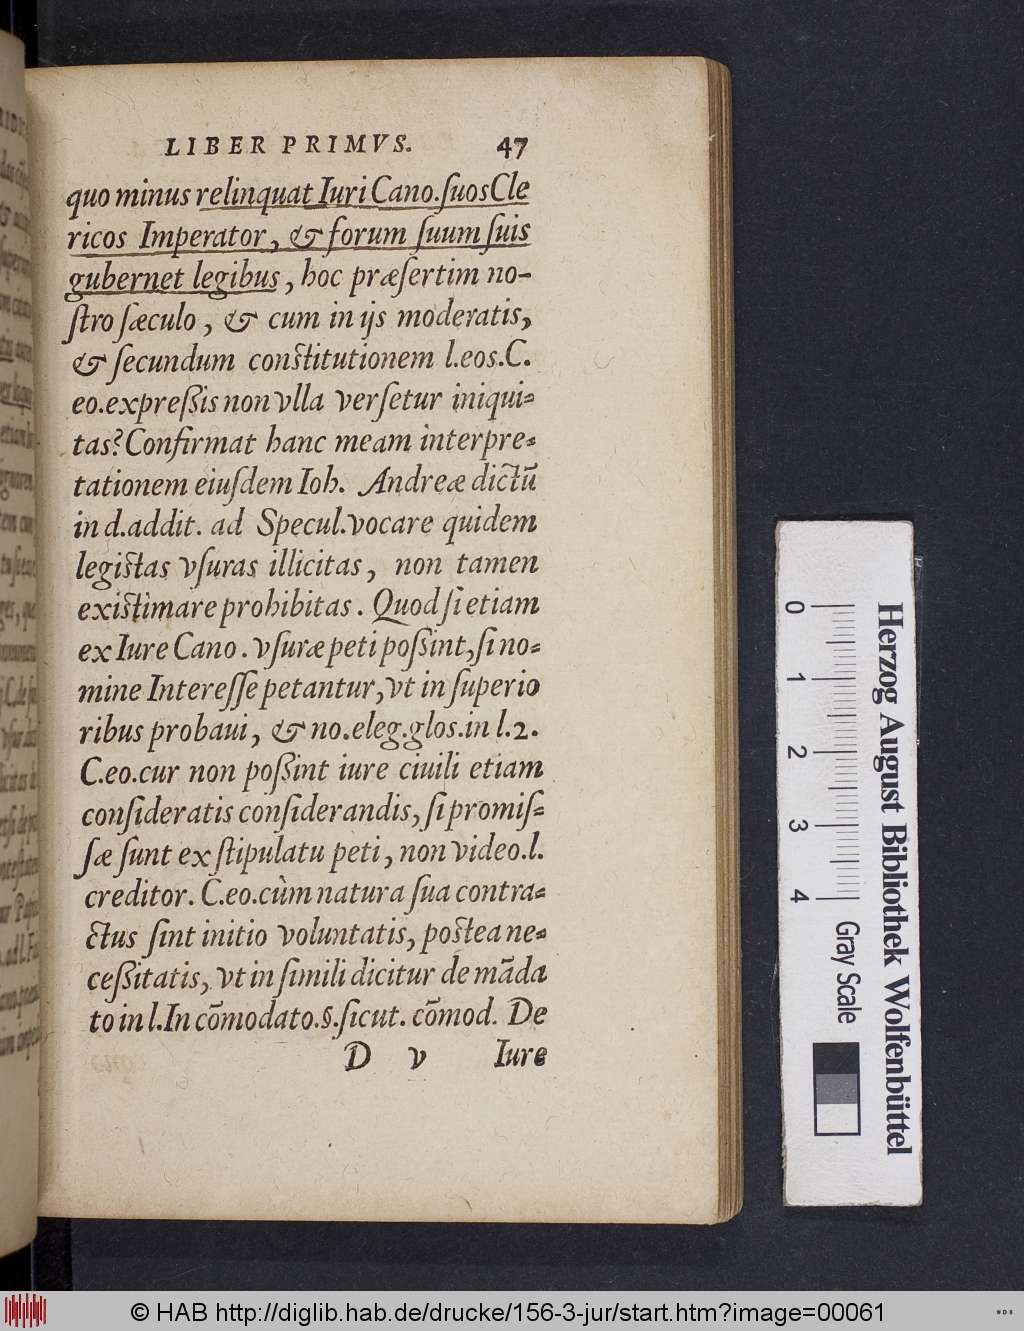 LIBER PRIMVS. 47
quo minus relinquat Iuri Cano. ſuos Cle
ricos Imperator, & forum ſuum ſuis
gubernet legibus, hoc præſertim no-
ſtro ſæculo, & cum in ijs moderatis,
& ſecundum conſtitutionem l.eos.C.
eo.expreßis non vlla verſetur iniqui=
tas? Confirmat hanc meam interpre=
tationem eiuſdem Ioh. Andreæ dictū
in d.addit. ad Specul.vocare quidem
legiſtas vſuras illicitas, non tamen
exiſtimare prohibitas. Quod ſi etiam
ex Iure Cano. vſuræ peti poßint, ſi no=
mine Intereſſe petantur, vt in ſuperio
ribus probaui, & no.eleg.glos.in l.2.
C.eo.cur non poßint iure ciuili etiam
conſideratis conſiderandis, ſi promiſ=
ſæ ſunt ex ſtipulatu peti, non video.l.
creditor. C.eo.cùm natura ſua contra=
ctus ſint initio voluntatis, poſtea ne=
ceßitatis, vt in ſimili dicitur de mādа
to in l.In cōmodato.§.ſicut. cōmod. De
D v Iure
Herzog August Bibliothek Wolfenbüttel
0 1 2 3 4
Gray Scale
© HAB http://diglib.hab.de/drucke/156-3-jur/start.htm?image=00061